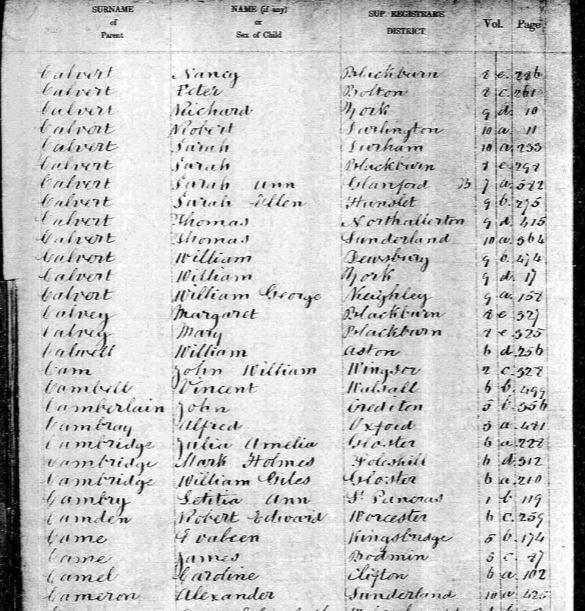 SURNAME of Parent NAME (if any) or Sex of Child SUP. REGISTRAR'S DISTRICT Vol. Page
Calvert Nancy Blackburn 8 e. 286
Calvert Peter Bolton 8 c. 261
Calvert Richard York 9 d. 10
Calvert Robert Darlington 10 a. 11
Calvert Sarah Durham 10 a. 233
Calvert Sarah Blackburn 8 e. 298
Calvert Sarah Ann Glanford B 7 a. 582
Calvert Sarah Ellen Hunslet 9 b. 275
Calvert Thomas Northallerton 9 d. 415
Calvert Thomas Sunderland 10 a. 564
Calvert William Dewsbury 9 b. 474
Calvert William York 9 d. 17
Calvert William George Keighley 9 a. 158
Calvey Margaret Blackburn 8 e. 327
Calvey Mary Blackburn 8 e. 325
Calwell William Aston 6 d. 256
Cam John William Windsor 2 c. 328
Cambell Vincent Walsall 6 b. 499
Camberlain John Crediton 5 b. 356
Cambray Alfred Oxford 3 a. 481
Cambridge Julia Amelia Gloster 6 a. 222
Cambridge Mark Holmes Foleshill 6 d. 312
Cambridge William Giles Gloster 6 a. 210
Cambry Letitia Ann St Pancras 1 b. 119
Camden Robert Edward Worcester 6 c. 259
Came Evabeen Kingsbridge 5 b. 174
Came James Bodmin 5 c. 87
Camel Caroline Clifton 6 a. 102
Cameron Alexander Sunderland 10 a. 525